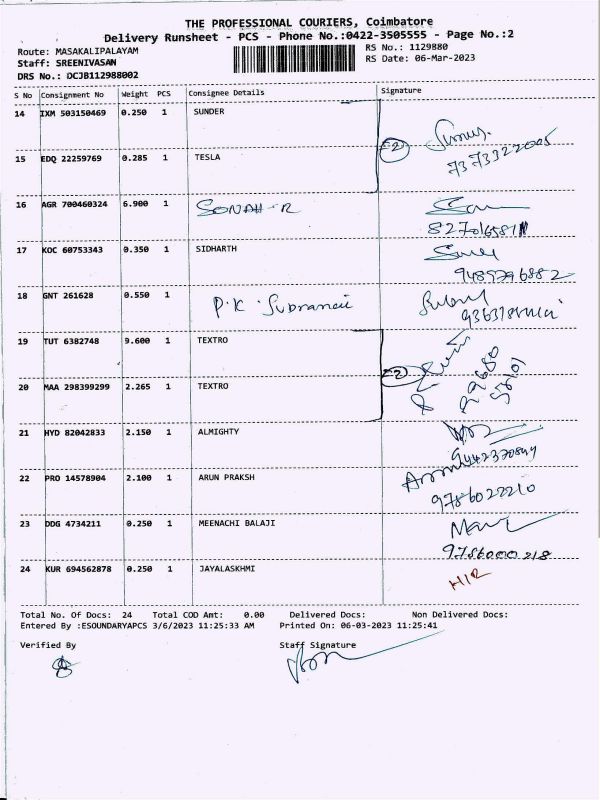 THE PROFESSIONAL COURIERS, Coimbatore
Delivery Runsheet - PCS - Phone No.:0422-3505555 - Page No.:2
Route: MASAKALIPALAYAM
RS No.: 1129880
Staff: SREENIVASAN
RS Date: 06-Mar-2023
DRS No.: DCJB112988002
S No Consignment No Weight PCS Consignee Details Signature
14 IXM 503150469 0.250 1 SUNDER
15 EDQ 22259769 0.285 1 TESLA
2
7373322005
16 AGR 700460324 6.900 1 SONAH-R
17 KOC 60753343 0.350 1 SIDHARTH
9489296882
18 GNT 261628 0.550 1 P.K.
19 TUT 6382748 9.600 1 TEXTRO
2
20 MAA 298399299 2.265 1 TEXTRO
21 HYD 82042833 2.150 1 ALMIGHTY
22 PRO 14578904 2.100 1 ARUN PRAKSH
9786022210
23 DDG 4734211 0.250 1 MEENACHI BALAJI
9786000218
24 KUR 694562878 0.250 1 JAYALASKHMI
Total No. Of Docs: 24 Total COD Amt: 0.00 Delivered Docs: Non Delivered Docs:
Entered By :ESOUNDARYAPCS 3/6/2023 11:25:33 AM Printed On: 06-03-2023 11:25:41
Verified By Staff Signature